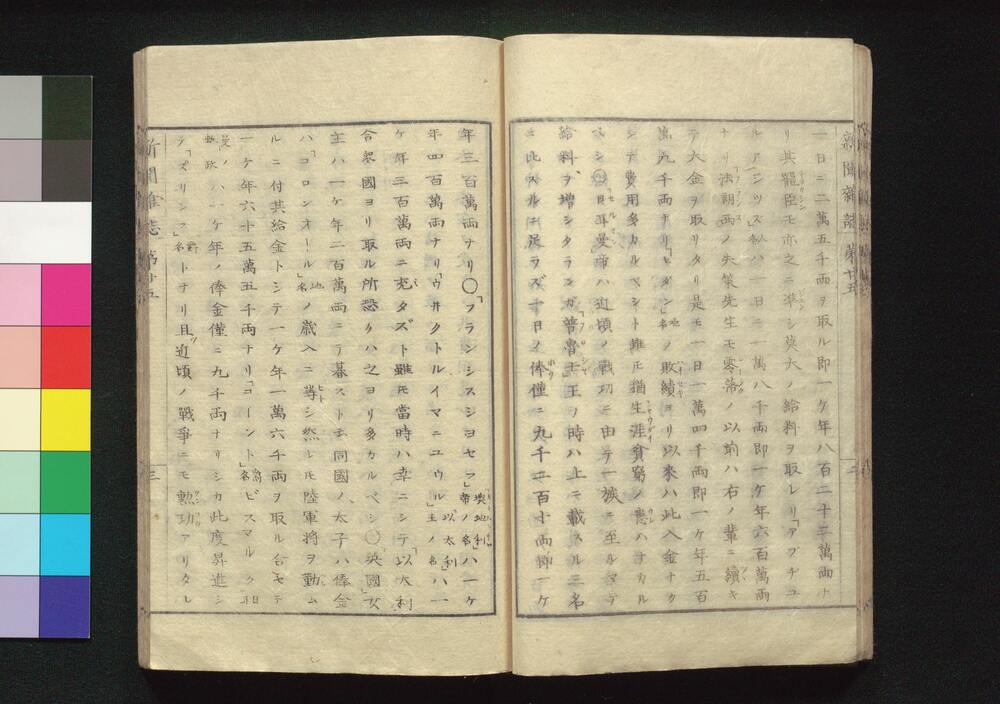 新聞雑誌 第十五
二
一日ニ二萬五千両ヲ取ル即一ケ年八百二十三萬両ナ
リ其寵臣モ亦之ニ準シ莫大ノ給料ヲ取レリ「アフヂユ
ルアンツス」私ハ一日ニ一萬八千両即一ケ年六百萬両
ナリ法朗西ノ失策先生モ零常ノ以前ハ右ノ輩ニ續キ
テ大金ヲ取リタリ是モ一日一萬四千両即一ケ年五百
萬九千両ナリ「セダン」地名ノ敗績ヨリ以来ハ此入金ナク
シテ費用多カルベシト雖モ猶生涯貧窮ノ患ハナカル
ベシ◯日耳曼帝ハ近頃ノ戦功ニ由テ一族ニ至ルマデ
給料ヲ増シタランガ普魯士王ノ時ハ上ニ載スル三名
ニ比スルニ足ラズ一日ノ俸僅ニ九千二百十両即一ケ
年三百萬両ナリ◯「フランシスシヨセフ」墺地利帝ノ名ハ一ケ
年四百萬両ナリ「ウ井クトルイマニユウル」以太利王ノ名ハ一
ケ年三百萬両ニ充タズト雖モ當時ハ幸ニシテ以太利
合衆國ヨリ取ル所恐クハ之ヨリ多カルベシ◯英國女
主ハ一ケ年二百萬両ニテ暮スト云同國ノ太子ハ俸金
ハ「コロンオール」地名ノ歳入ニ等シ然レモ陸軍将ヲ勤ム
ルニ付其給金トシテ一ケ年一萬六千両ヲ取ル合セテ
一ケ年六十五萬五千両ナリ「コーント」爵名ビスマルク日耳
曼ノ執政ハ一ケ年ノ俸金僅ニ九千両ナリシカ此度昇進シ
テ「プリンフ」爵名トナリ且近頃ノ戦争ニモ勲功アリタレ
新聞雑誌 第十五
三